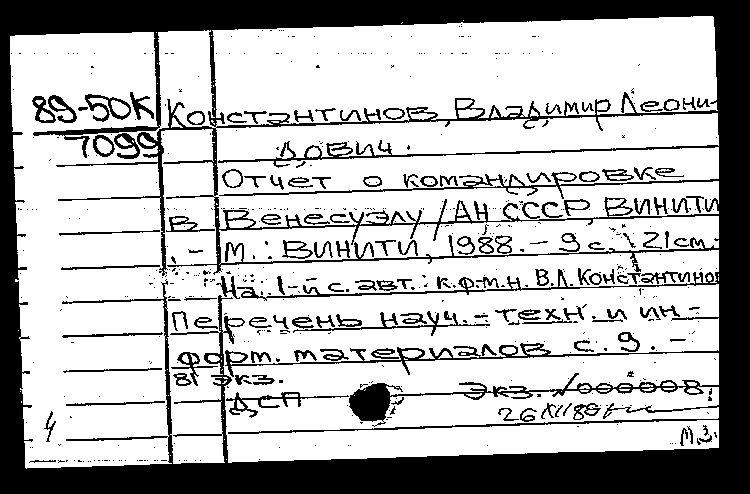 89-50К Константинов, Владимир Леони-
7099 дович.
Отчет о командировке
в Венесуэлу / АН СССР, ВИНИТИ
. - М.: ВИНИТИ, 1988. - 9 с. ; 21 см.
На 1-й с. авт.: к.ф.-м.н. В.Л. Константинов
Перечень науч.-техн. и ин-
форм. материалов с. 9. -
81 экз.
ДСП Экз. №000008.
26 XII 89г
4 М.З.